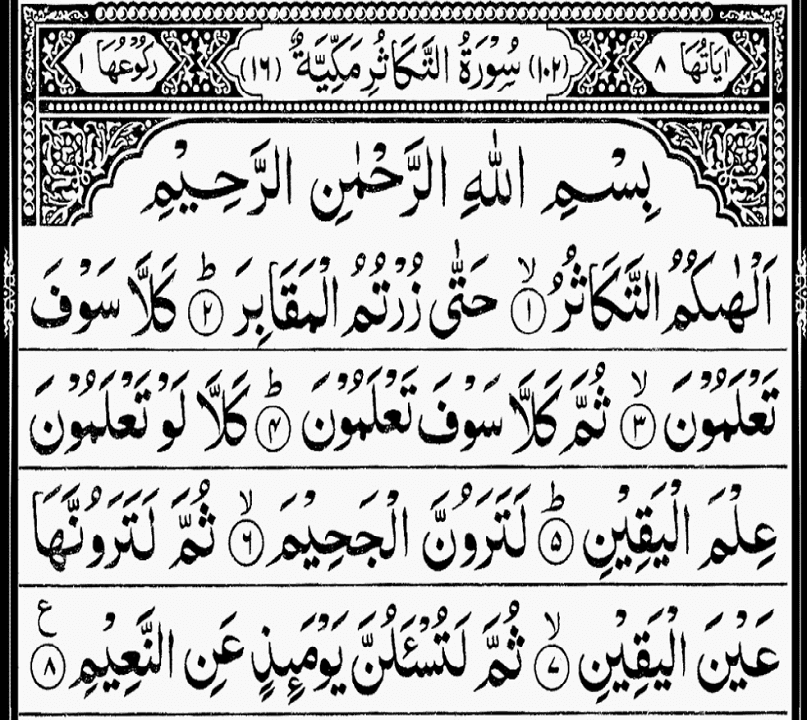 اٰیَاتُهَا ۸ (۱۰۲) سُوْرَةُ التَّكَاثُرِ مَكِّیَّةٌ (۱۶) رُكُوْعُهَا ۱
بِسْمِ اللّٰهِ الرَّحْمٰنِ الرَّحِیْمِ
اَلْهٰىكُمُ التَّكَاثُرُ ۙ﴿۱﴾ حَتّٰی زُرْتُمُ الْمَقَابِرَ ؕ﴿۲﴾ كَلَّا سَوْفَ
تَعْلَمُوْنَ ۙ﴿۳﴾ ثُمَّ كَلَّا سَوْفَ تَعْلَمُوْنَ ؕ﴿۴﴾ كَلَّا لَوْ تَعْلَمُوْنَ
عِلْمَ الْیَقِیْنِ ؕ﴿۵﴾ لَتَرَوُنَّ الْجَحِیْمَ ۙ﴿۶﴾ ثُمَّ لَتَرَوُنَّهَا
عَیْنَ الْیَقِیْنِ ۙ﴿۷﴾ ثُمَّ لَتُسْـَٔلُنَّ یَوْمَىِٕذٍ عَنِ النَّعِیْمِ ﴿۸﴾ ع